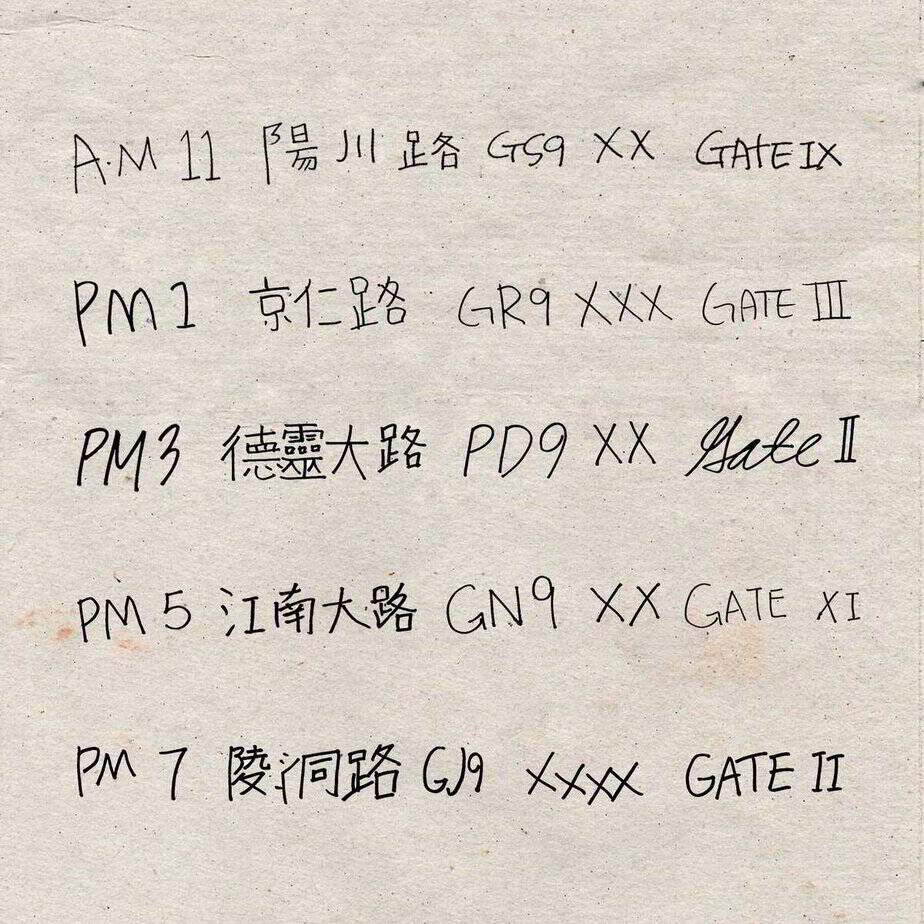 A.M 11 陽川路 GS9 XX GATE IX
PM 1 京仁路 GR9 XXX GATE III
PM 3 德靈大路 PD9 XX Gate II
PM 5 江南大路 GN9 XX GATE XI
PM 7 陵洞路 GJ9 XXXX GATE II